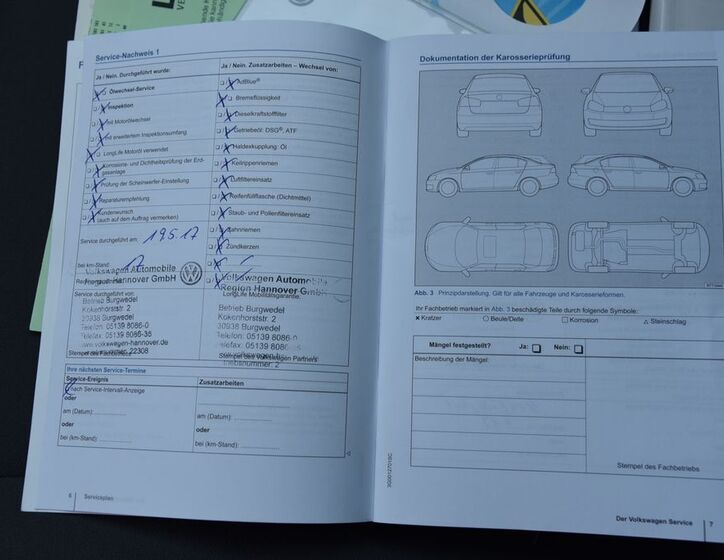 Service-Nachweis 1
Ja / Nein. Durchgeführt wurde:
Ölwechsel-Service
Inspektion
mit Motorölwechsel
mit erweitertem Inspektionsumfang
LongLife Motoröl verwendet
Korrosions- und Dichtheitsprüfung der Erd-
gasanlage
Prüfung der Scheinwerfer-Einstellung
Reparaturempfehlung
Kundenwunsch
(auch auf dem Auftrag vermerken)
Service durchgeführt am: 19.5.17
bei km-Stand:
Volkswagen Automobile
Region Hannover GmbH
Service durchgeführt von:
Betrieb Burgwedel
Kokenhorststr. 2
30938 Burgwedel
Telefon: 05139 8086-0
Telefax: 05139 8086-35
www.volkswagen-hannover.de
22308
Ja / Nein. Zusatzarbeiten – Wechsel von:
AdBlue®
Bremsflüssigkeit
Dieselkraftstofffilter
Getriebeöl: DSG®, ATF
Haldexkupplung: Öl
Keilrippenriemen
Luftfiltereinsatz
Reifenfüllflasche (Dichtmittel)
Staub- und Pollenfiltereinsatz
Zahnriemen
Zündkerzen
Volkswagen Automobile
Region Hannover GmbH
LongLife Mobilitätsgarantie:
Betrieb Burgwedel
Kokenhorststr. 2
30938 Burgwedel
Telefon: 05139 8086-0
Stempel des Volkswagen Partners
Ihre nächsten Service-Termine
Service-Ereignis
Zusatzarbeiten
nach Service-Intervall-Anzeige
oder
am (Datum):
am (Datum):
oder
oder
bei (km-Stand):
bei (km-Stand):
6 Serviceplan
Dokumentation der Karosserieprüfung
Abb. 3 Prinzipdarstellung. Gilt für alle Fahrzeuge und Karosserieformen.
Ihr Fachbetrieb markiert in Abb. 3 beschädigte Teile durch folgende Symbole:
× Kratzer ○ Beule/Delle □ Korrosion △ Steinschlag
Mängel festgestellt? Ja: Nein:
Beschreibung der Mängel:
Stempel des Fachbetriebs
Der Volkswagen Service 7